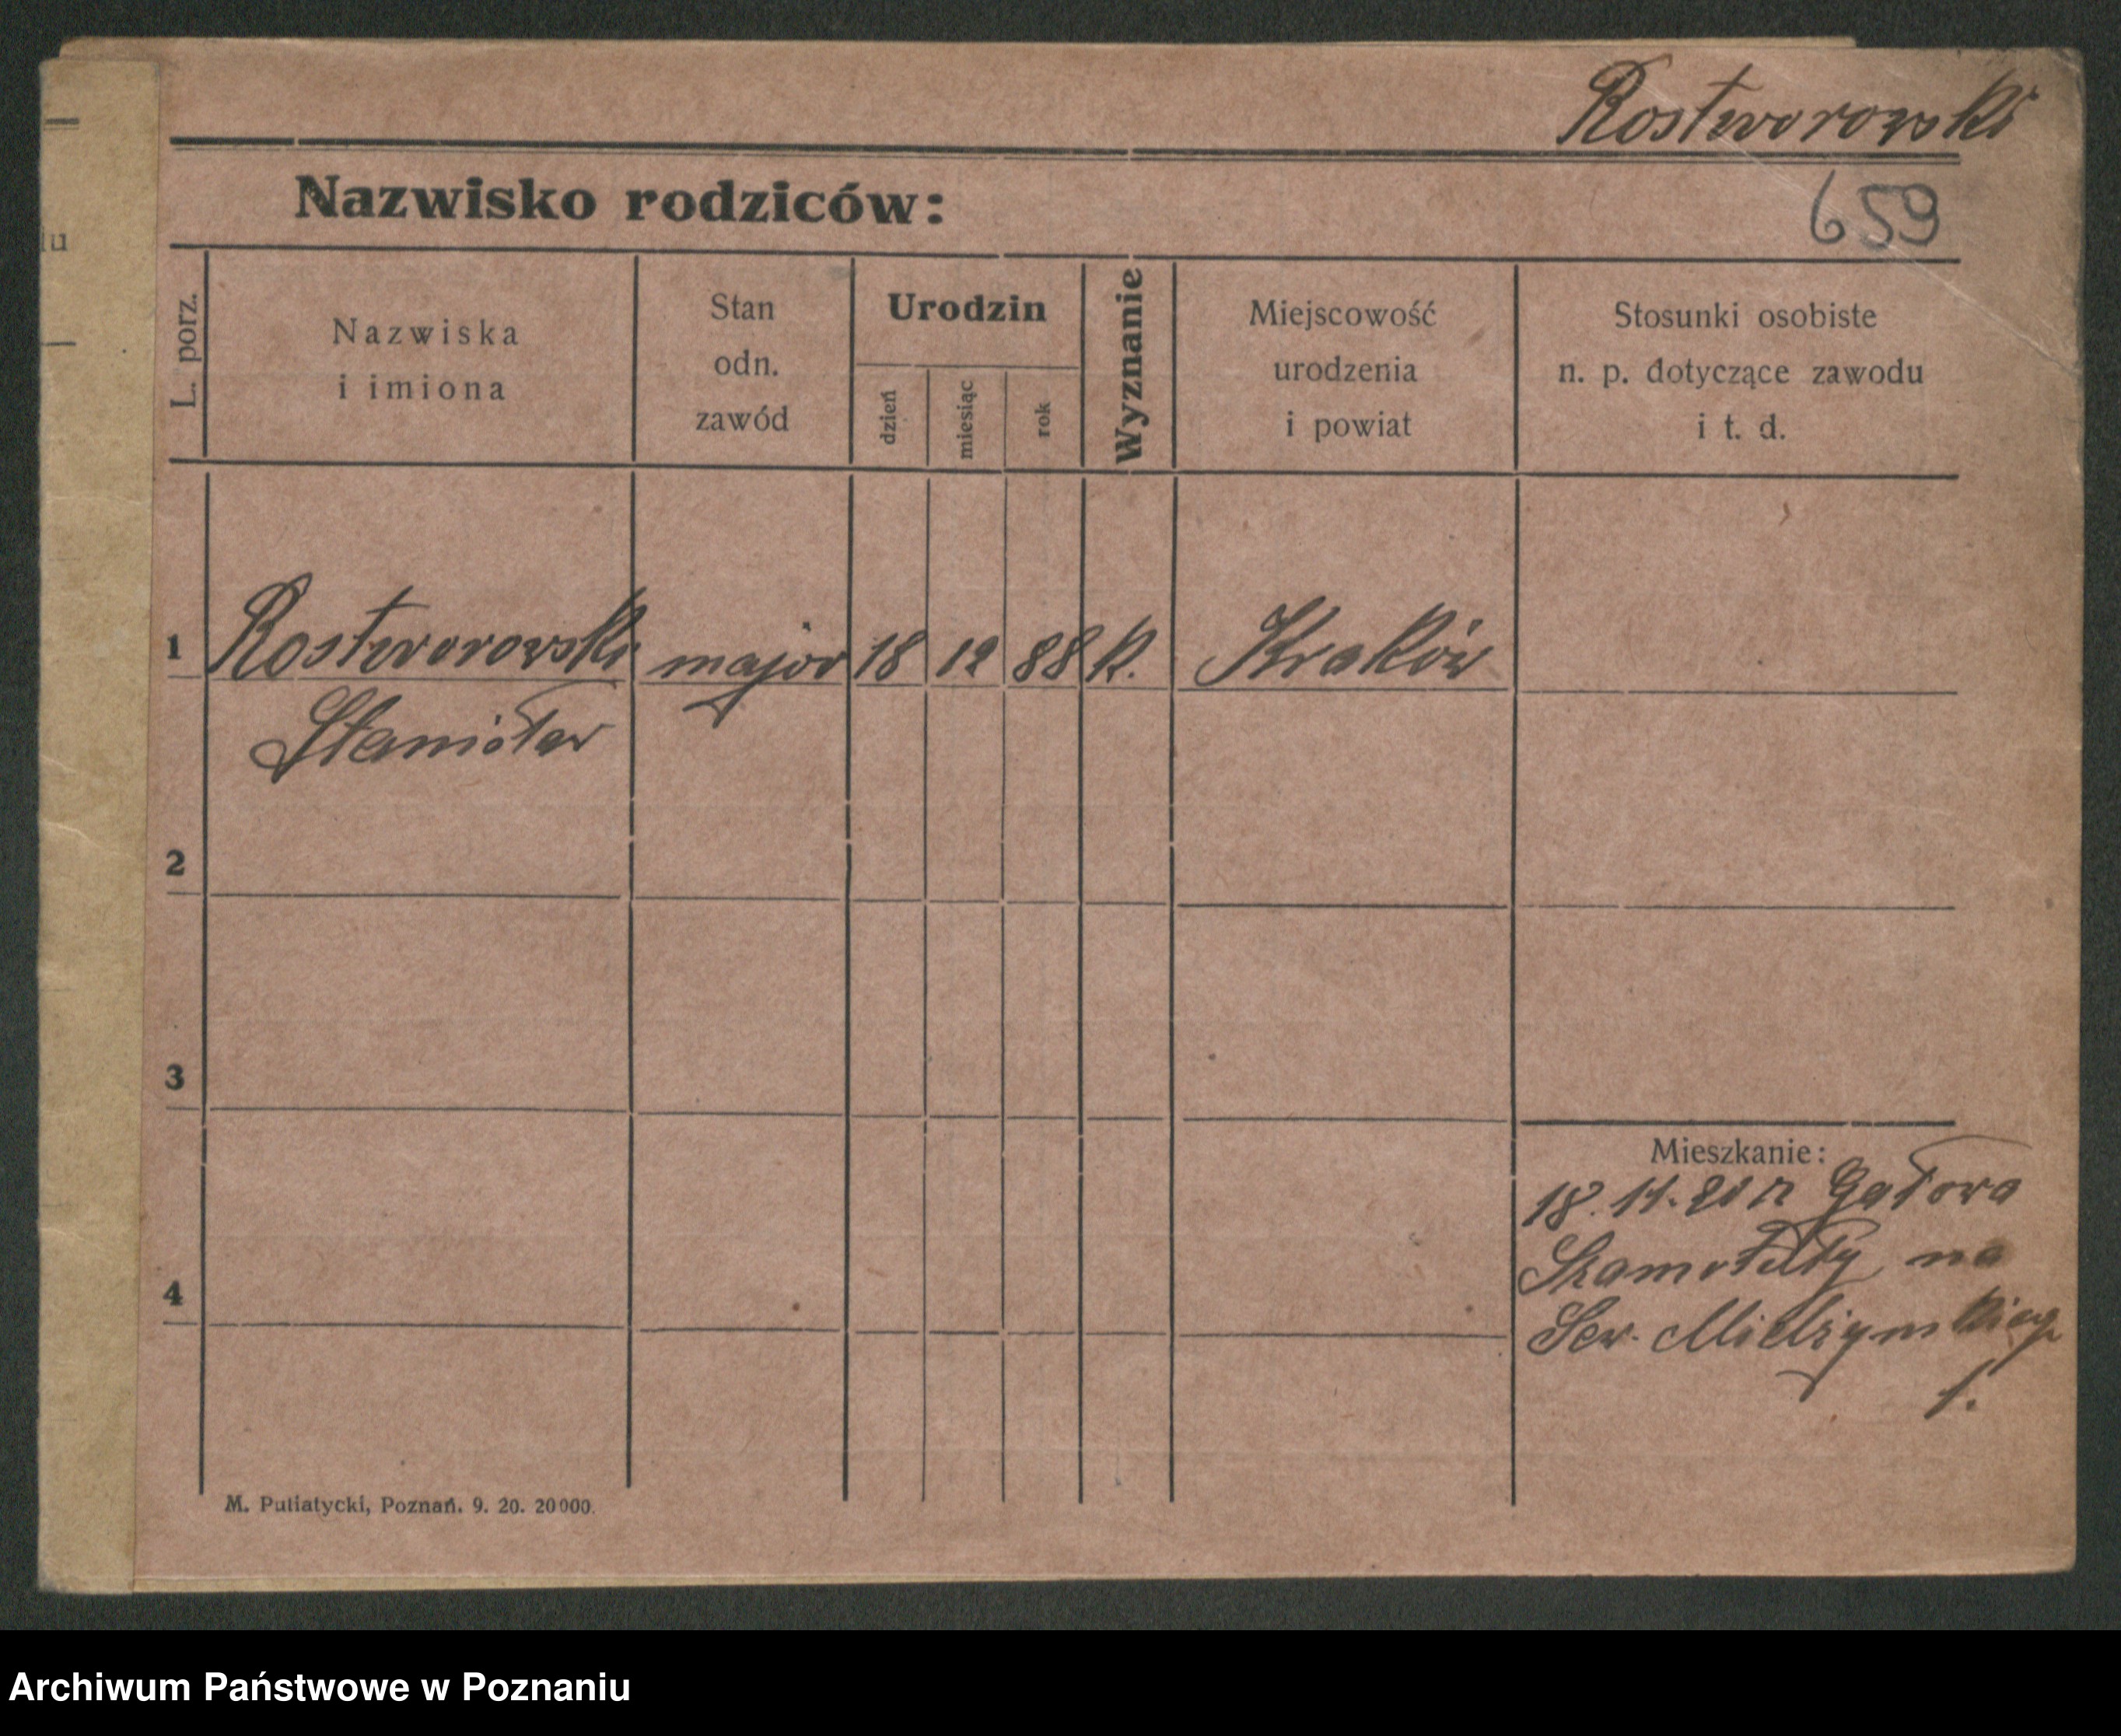 Rostworowski
Nazwisko rodziców:
659
L. porz.
Nazwiska
i imiona
Stan
odn.
zawód
Urodzin
dzień
miesiąc
rok
Wyznanie
Miejscowość
urodzenia
i powiat
Stosunki osobiste
n. p. dotyczące zawodu
i t. d.
1 Rostworowski major 18 12 88 k. Kraków
Stanisław
2
3
4
Mieszkanie:
18. 11. 21 z Gałowa
Szamotuły na
Sew. Mielżyńskiego
1.
M. Putiatycki, Poznań. 9. 20. 20000.
lu
Archiwum Państwowe w Poznaniu